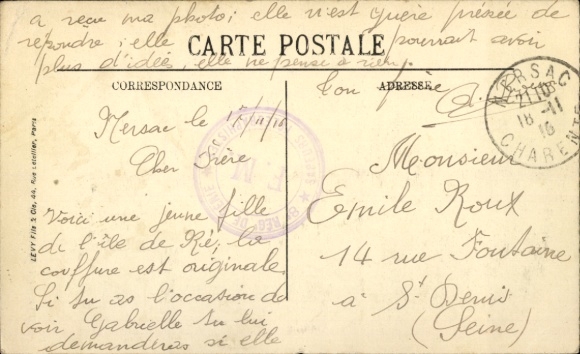 a reçu ma photo; elle n'est guère pressée de
répondre; elle pourrait avoir
plus d'idées, elle ne pense à rien.
CARTE POSTALE
CORRESPONDANCE
ADRESSE
Ton frère
Mersac le 17/11/16
Cher Frère
Voici une jeune fille
de l'île de Ré; la
coiffure est originale.
Si tu as l'occasion de
voir Gabrielle tu lui
demanderas si elle
Monsieur
Emile Roux
14 rue Fontaine
à St Denis
(Seine)
NERSAC
21 10
18-11
16
CHARENTE
LEVY Fils & Cie, 44, Rue Letellier, Paris